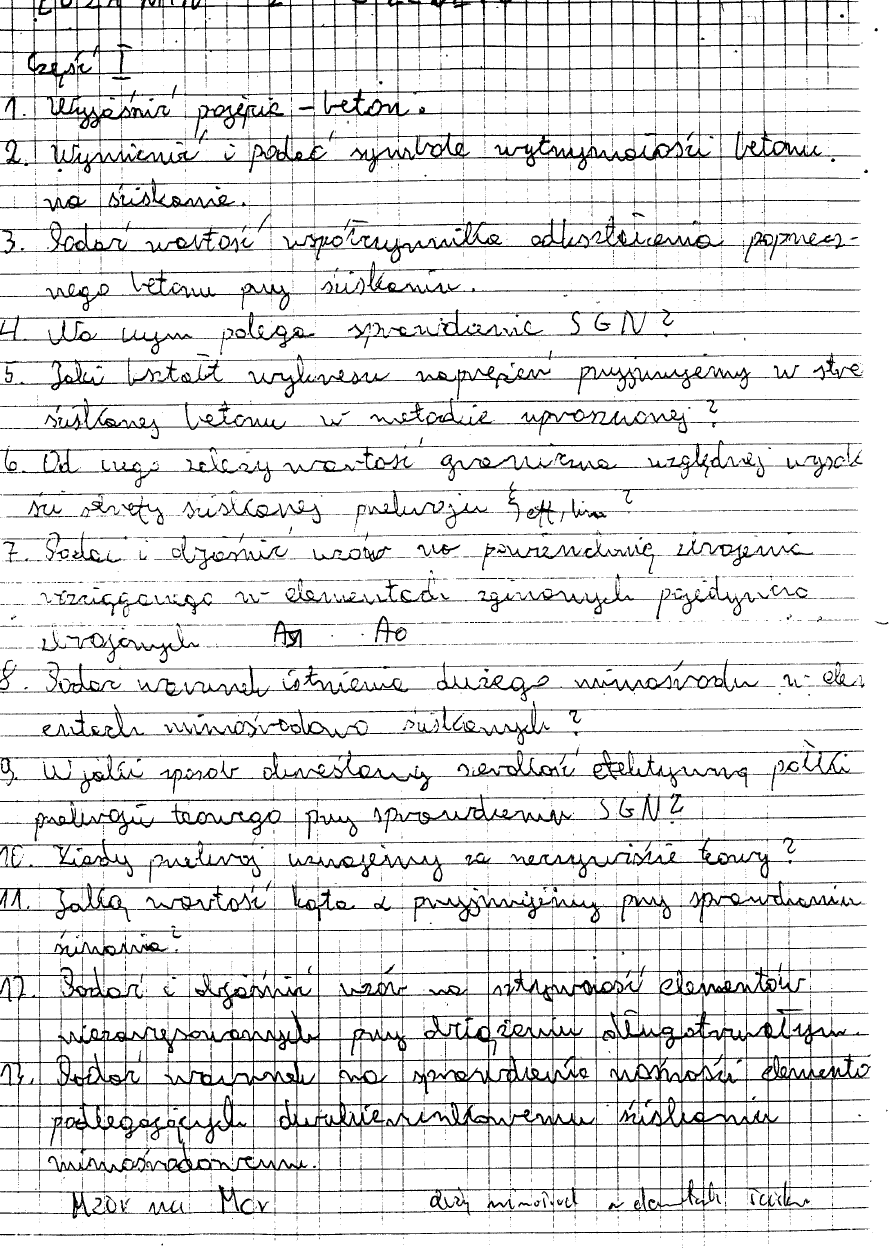 Część I
1. Wyjaśnić pojęcie – beton.
2. Wymienić i podać symbole wytrzymałości betonu
na ściskanie.
3. Podać wartość współczynnika odkształcenia poprzecz-
nego betonu przy ściskaniu.
4. Na czym polega sprawdzanie SGN?
5. Jaki kształt wykresu naprężeń przyjmujemy w stre
ściskanej betonu w metodzie uproszczonej?
6. Od czego zależy wartość graniczna względnej wysok
ści strefy ściskanej przekroju ξeff,lim?
7. Podać i objaśnić wzór na powierzchnię zbrojenia
rozciąganego w elementach zginanych pojedynczo
zbrojonych As1 Ao
8. Podać warunek istnienia dużego mimośrodu w elem
entach mimośrodowo ściskanych?
9. W jaki sposób określamy szerokość efektywną półki
przekroju teowego przy sprawdzeniu SGN?
10. Kiedy przekrój uznajemy za rzeczywiście teowy?
11. Jaką wartość kąta α przyjmujemy przy sprawdzaniu
ścinania?
12. Podać i objaśnić wzór na sztywność elementów
niezarysowanych przy obciążeniu długotrwałym.
13. Podać warunek na sprawdzenie nośności elementó
podlegających dwukierunkowemu ściskaniu
mimośrodowemu.
Wzór na Mcr duży mimośród w elementach ścisk